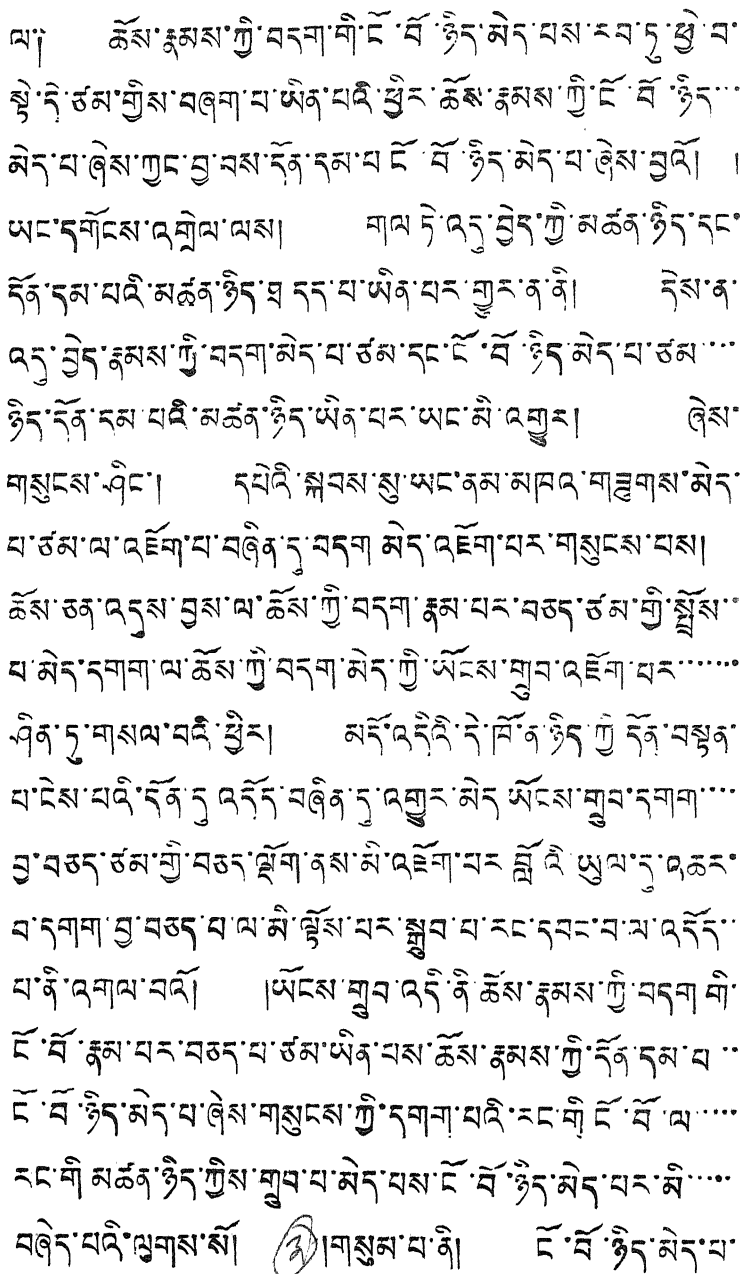 ལ། ཆོས་རྣམས་ཀྱི་བདག་གི་ངོ་བོ་ཉིད་མེད་པས་རབ་ཏུ་ཕྱེ་བ་
སྟེ་དེ་ཙམ་གྱིས་བཞག་པ་ཡིན་པའི་ཕྱིར་ཆོས་རྣམས་ཀྱི་ངོ་བོ་ཉིད་་་
མེད་པ་ཞེས་ཀྱང་བྱ་བས་དོན་དམ་པ་ངོ་བོ་ཉིད་མེད་པ་ཞེས་བྱའོ། །
ཡང་དགོངས་འགྲེལ་ལས། གལ་ཏེ་འདུ་བྱེད་ཀྱི་མཚན་ཉིད་དང་
དོན་དམ་པའི་མཚན་ཉིད་ཐ་དད་པ་ཡིན་པར་གྱུར་ན་ནི། དེས་ན་
འདུ་བྱེད་རྣམས་ཀྱི་བདག་མེད་པ་ཙམ་དང་ངོ་བོ་ཉིད་མེད་པ་ཙམ་་་་
ཉིད་དོན་དམ་པའི་མཚན་ཉིད་ཡིན་པར་ཡང་མི་འགྱུར། ཞེས་
གསུངས་ཤིང་། དཔེའི་སྐབས་སུ་ཡང་ནམ་མཁའ་གཟུགས་མེད་
པ་ཙམ་ལ་འཇོག་པ་བཞིན་དུ་བདག་མེད་འཇོག་པར་གསུངས་པས།
ཆོས་ཅན་འདུས་བྱས་ལ་ཆོས་ཀྱི་བདག་རྣམ་པར་བཅད་ཙམ་གྱི་སྤྲོས་་་
པ་མེད་དགག་ལ་ཆོས་ཀྱི་བདག་མེད་ཀྱི་ཡོངས་གྲུབ་འཇོག་པར་་་་་་་
ཤིན་ཏུ་གསལ་བའི་ཕྱིར། མདོ་འདིའི་དེ་ཁོ་ན་ཉིད་ཀྱི་དོན་བསྟན་
པ་ངེས་པའི་དོན་དུ་འདོད་བཞིན་དུ་འགྱུར་མེད་ཡོངས་གྲུབ་དགག་་་་
བྱ་བཅད་ཙམ་གྱི་བཅད་ལྡོག་ནས་མི་འཇོག་པར་བློ་འི་ཡུལ་དུ་འཆར་
བ་དགག་བྱ་བཅད་པ་ལ་མི་ལྟོས་པར་སྒྲུབ་པ་རང་དབང་བ་ལ་འདོད་་
པ་ནི་འགལ་བའོ། །ཡོངས་གྲུབ་འདི་ནི་ཆོས་རྣམས་ཀྱི་བདག་གི་
ངོ་བོ་རྣམ་པར་བཅད་པ་ཙམ་ཡིན་པས་ཆོས་རྣམས་ཀྱི་དོན་དམ་པ་་
ངོ་བོ་ཉིད་མེད་པ་ཞེས་གསུངས་ཀྱི་དགག་པའི་རང་གི་ངོ་བོ་ལ་་་་་
རང་གི་མཚན་ཉིད་ཀྱིས་གྲུབ་པ་མེད་པས་ངོ་བོ་ཉིད་མེད་པར་མི་་་་་
བཞེད་པའི་ལུགས་སོ། ༣ །གསུམ་པ་ནི། ངོ་བོ་ཉིད་མེད་པ་